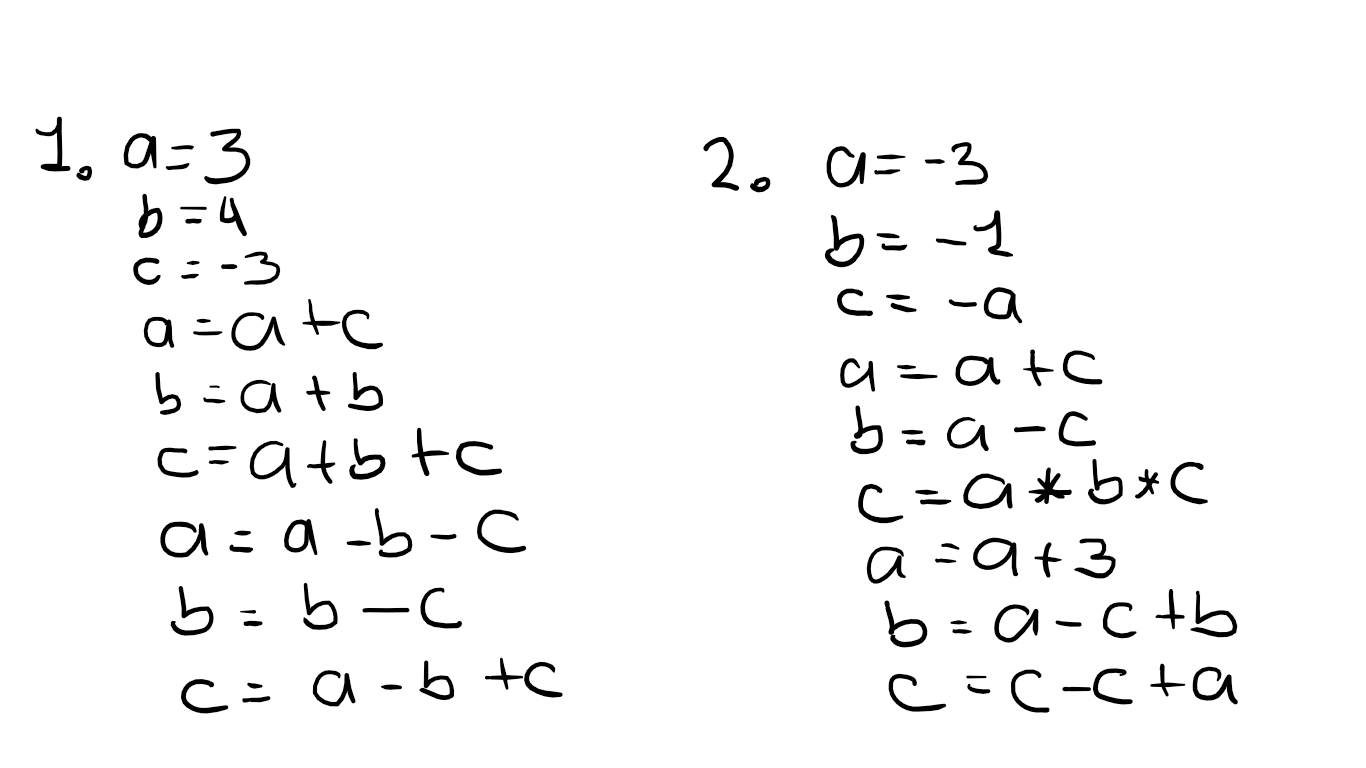 1. a = 3
b = 4
c = -3
a = a + c
b = a + b
c = a + b + c
a = a - b - c
b = b - c
c = a - b + c
2. a = -3
b = -1
c = -a
a = a + c
b = a - c
c = a * b * c
a = a + 3
b = a - c + b
c = c - c + a